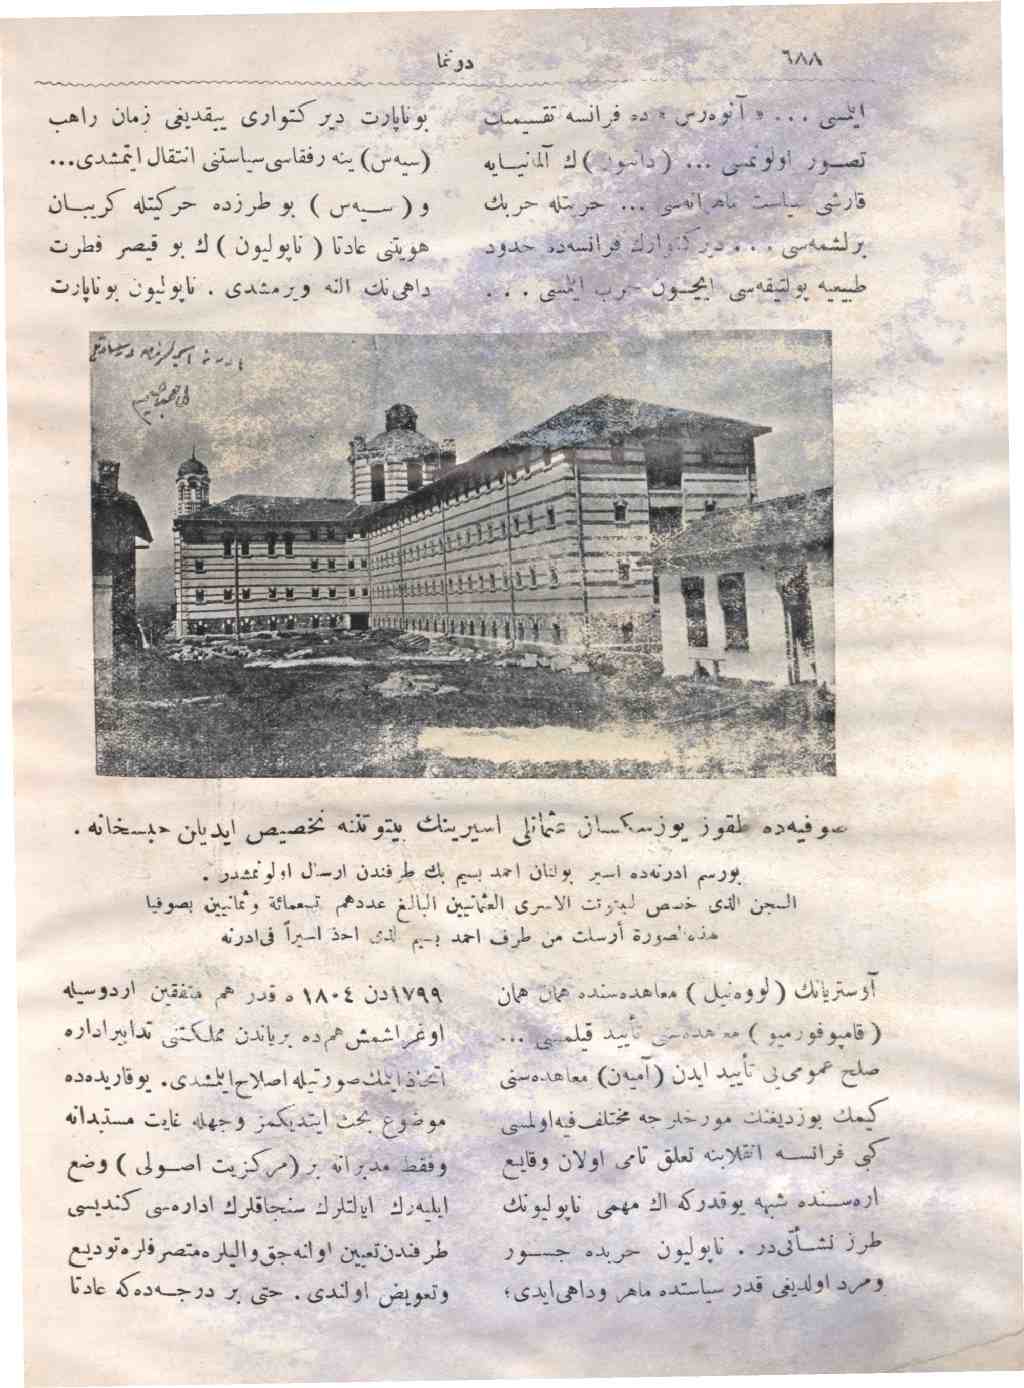 ٦٨٨
دوننما
ایتمسی ... « آنوه‌رس » ده فرانسه تقسیمنك
تصـــور اولونمسی ... (دانتون) ك آلمانیــایه
قارشی سیاست ماهرانه‌سی ... حریتله حربك
برلشمه‌سی ... دیرکتوارك فرانسه‌ده حدود
طبیعیه پولتیقه‌سی ایچــون حرب ایتمسی ...
بوناپارت دیرکتواری ییقدیغی زمان راهب
(سیه‌س) ینه رفقاسی‌سیاستنی انتقال ایتمشدی...
و (ســیه‌س) بو طرزده حرکتیله کریبــان
هویتنی عادتا (ناپولیون) ك بو قیصر فطرت
داهی‌نك النه ویرمشدی . ناپولیون بوناپارت
صوفیه‌ده طقوز یوزسکسان عثمانلی اسیرینك بیتوتتنه تخصیص ایدیلن حبسخانه .
بورسم ادرنه‌ده اسیر بولنان احمد بسیم بك طرفندن ارسال اولونمشدر .
السجن الذی خصص لبیتوتت الاسری العثمانیین البالغ عددهم تسعمائة وثمانیین بصوفیا
هذه‌الصورة أرسلت من طرف احمد بسیم لذی اخذ اسیراً فی‌ادرنه
آوستریانك (لووه‌نیل) معاهده‌سنده همان همان
(قامپوفورمیو) معاهده‌سنی تأیید قیلمسی ...
صلح عمومی‌یی تأیید ایدن (آمیه‌ن) معاهده‌سنی
کیمك بوزدیغنك مورخلرجه مختلف‌فیه‌اولمسی
کبی فرانســه انقلابنه تعلق تامی اولان وقایع
اره‌ســنده شبهه یوقدرکه اك مهمی ناپولیونك
طرز نشــأتی‌در . ناپولیون حربده جســور
ومرد اولدیغی قدر سیاستده ماهر وداهی‌ایدی؛
١٧٩٩دن ١٨٠٤ ه قدر هم متفقین اردوسیله
اوغراشمش‌هم‌ده بریاندن مملکتنی تدابیراداره
اتخاذایتمك‌صورتیله‌اصلاح‌ایتمشدی. یوقاریده‌ده
موضوع بحث ایتدیکمز وجهله غایت مستبدانه
وفقط مدبرانه بر (مرکزیت اصــولی) وضع
ایلیه‌رك ایالتلرك سنجاقلرك اداره‌سی کندیسی
طرفندن‌تعیین اولنه‌جق‌والیلره‌متصرفلره‌تودیع
وتعویض اولندی . حتی بر درجــه‌ده‌که عادتا